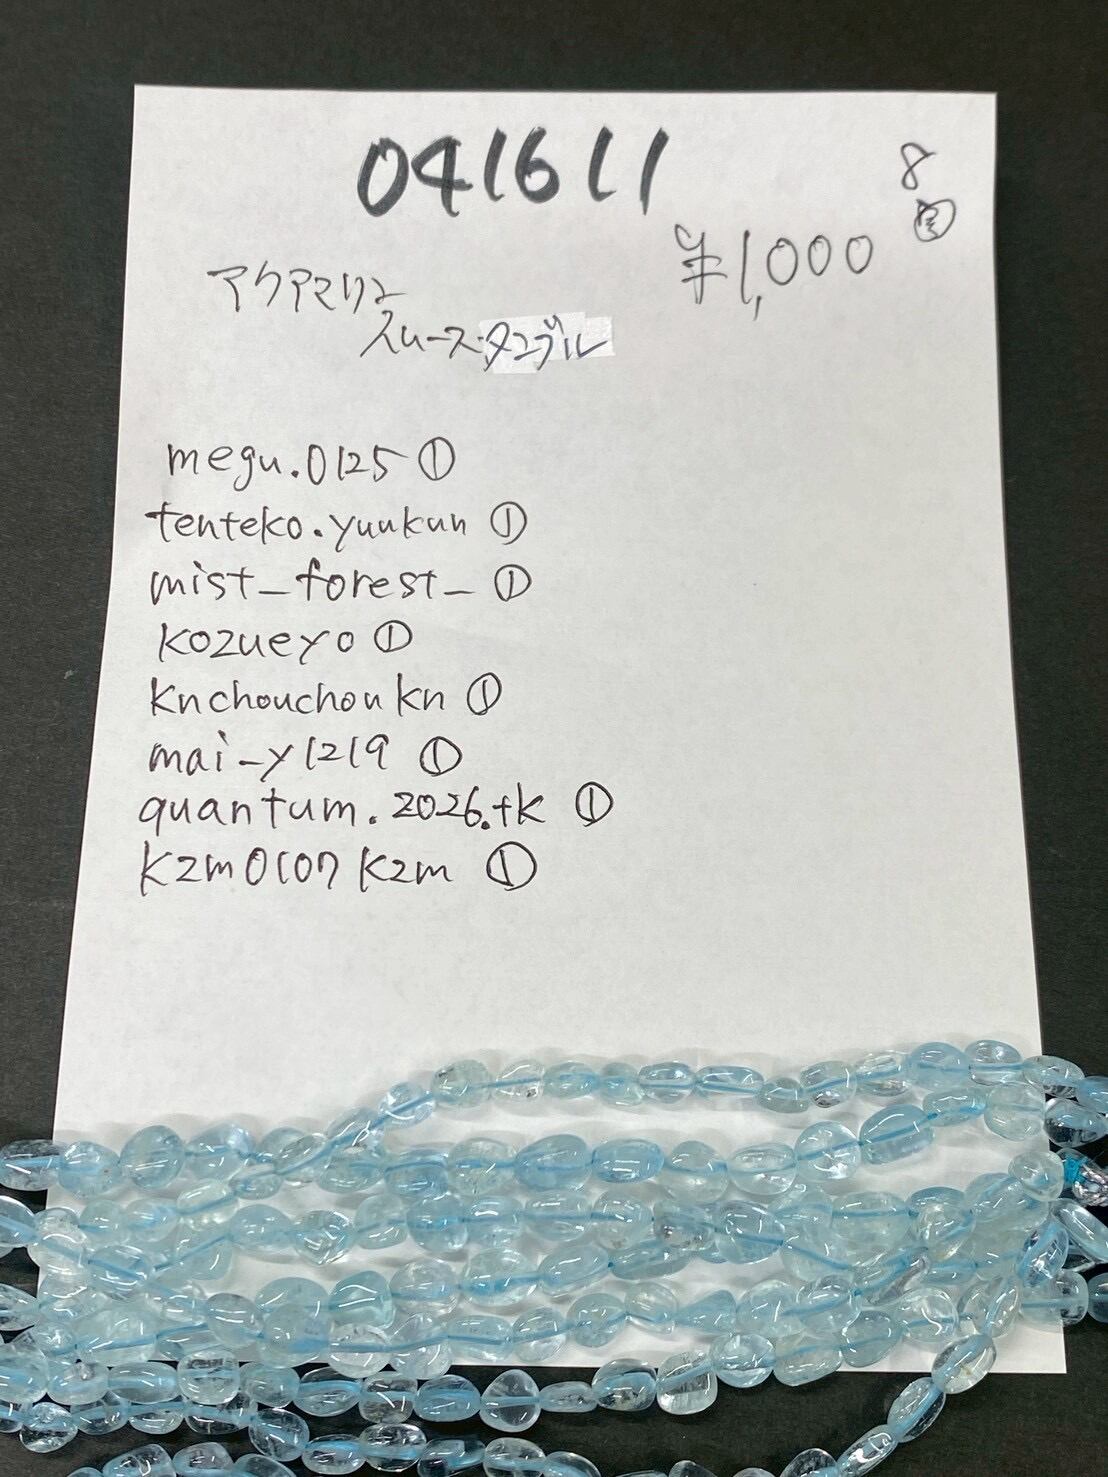 041611
8
¥1,000
アクアマリン
スムース・タンブル
megu.0125 ①
tenteko.yuukun ①
mist_forest_ ①
kozueyo ①
knchouchoukn ①
mai_y1219 ①
quantum.2026.tk ①
kzm0107kzm ①